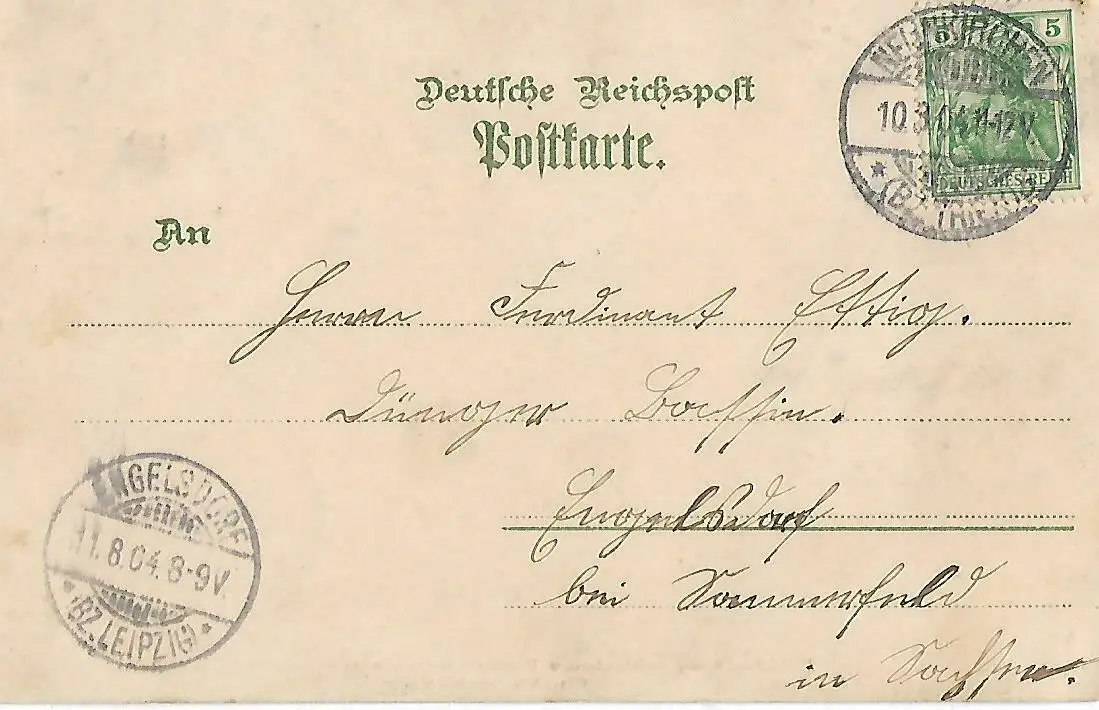 Deutsche Reichspost
Postkarte.
5 5
NEUNKIRCHEN
10.8.04.11-12V.
* (BZ. TRIER) *
DEUTSCHES REICH
An
Herrn Ferdinant Ettig.
Dünger
Engelsdorf
bei Sommerfeld
in Sachsen.
ENGELSDORF
11.8.04.8-9V.
* (BZ. LEIPZIG) *